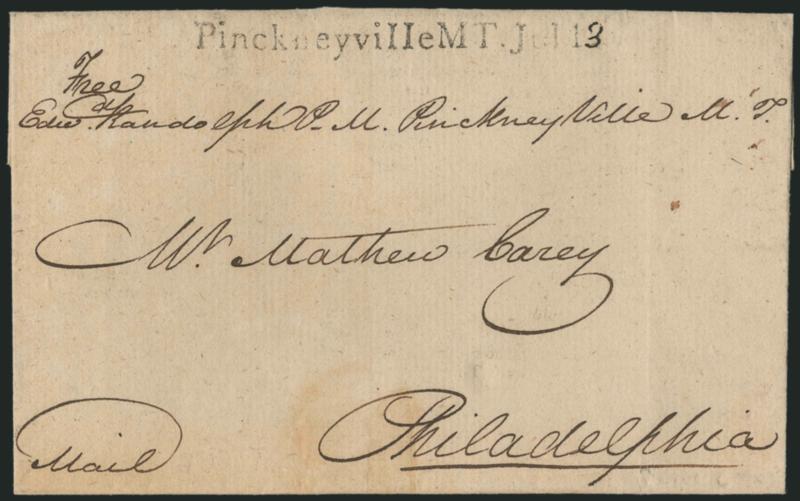 Pinckneyville M T. Jul 13
Free
Edwd. Randolph P. M. PinckneyVille M. T.
Mr. Mathew Carey
Philadelphia
Mail